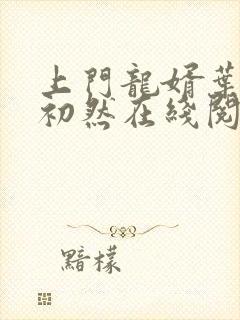 上門龍婿葉
初然在綫閱
黯檬